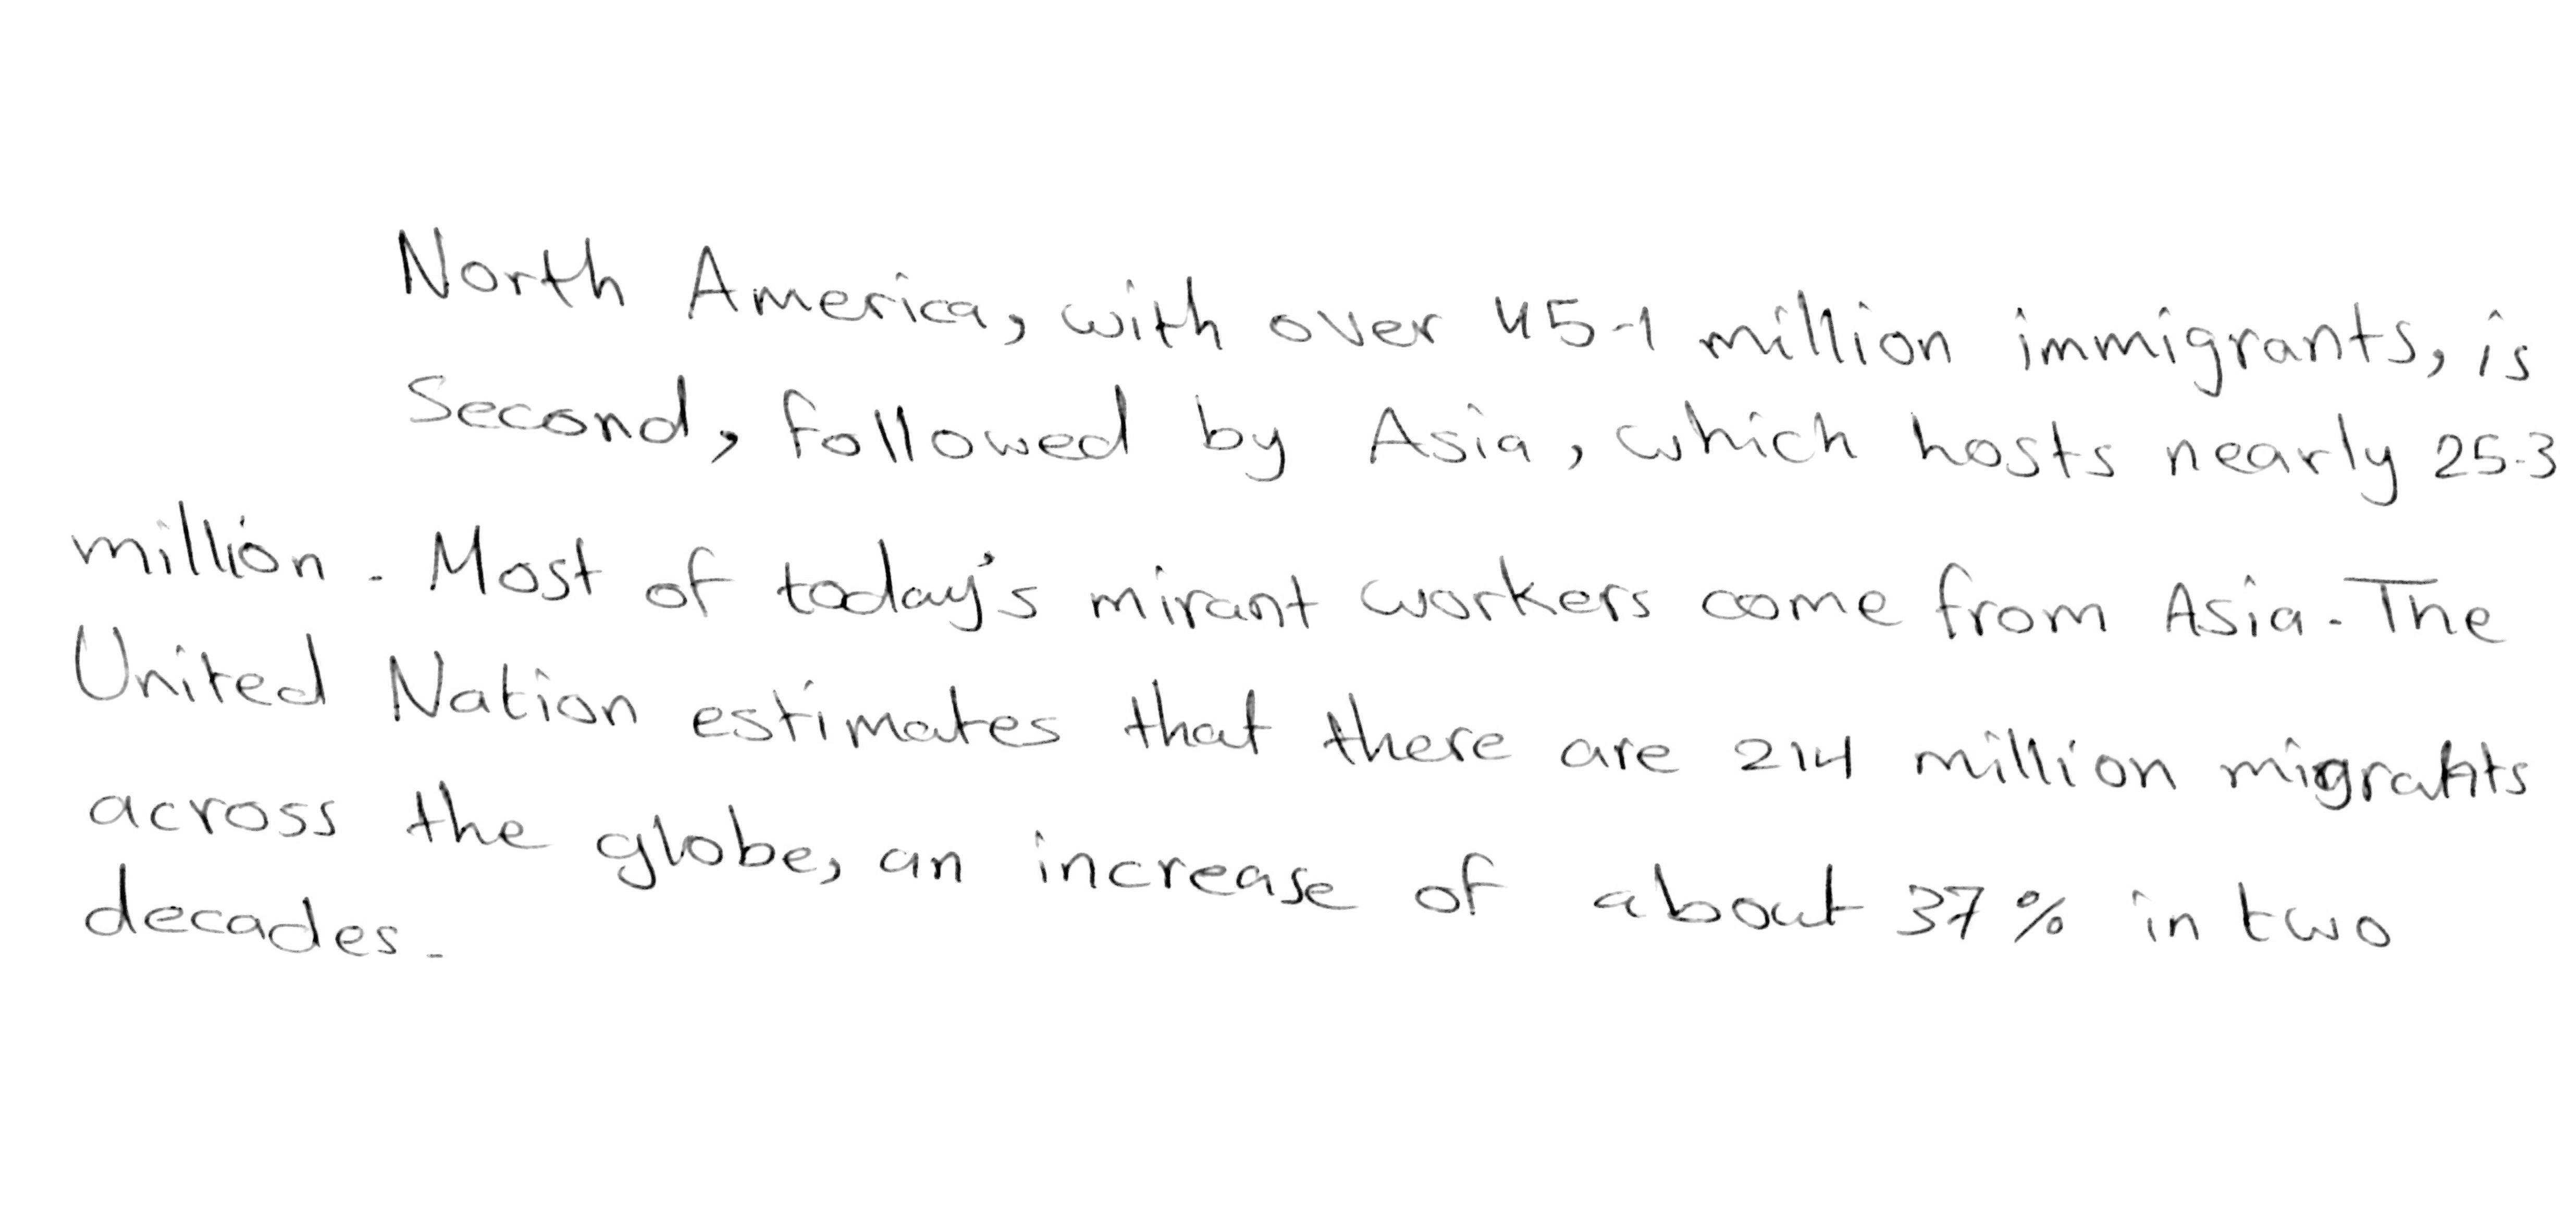 North America, with over 45.1 million immigrants, is
Second, followed by Asia, which hosts nearly 25.3
million. Most of today's mirant workers come from Asia. The
United Nation estimates that there are 214 million migrants
across the globe, an increase of about 37% in two
decades.